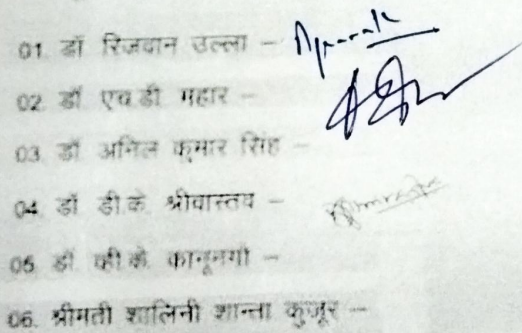 01. डॉ रिजवान उल्ला –
02. डॉ. एच.डी. महार –
03. डॉ अनिल कुमार सिंह –
04. डॉ. डी.के. श्रीवास्तव –
05. डॉ. व्ही.के. कानूनगो –
06. श्रीमती शालिनी शान्ता कुजूर –